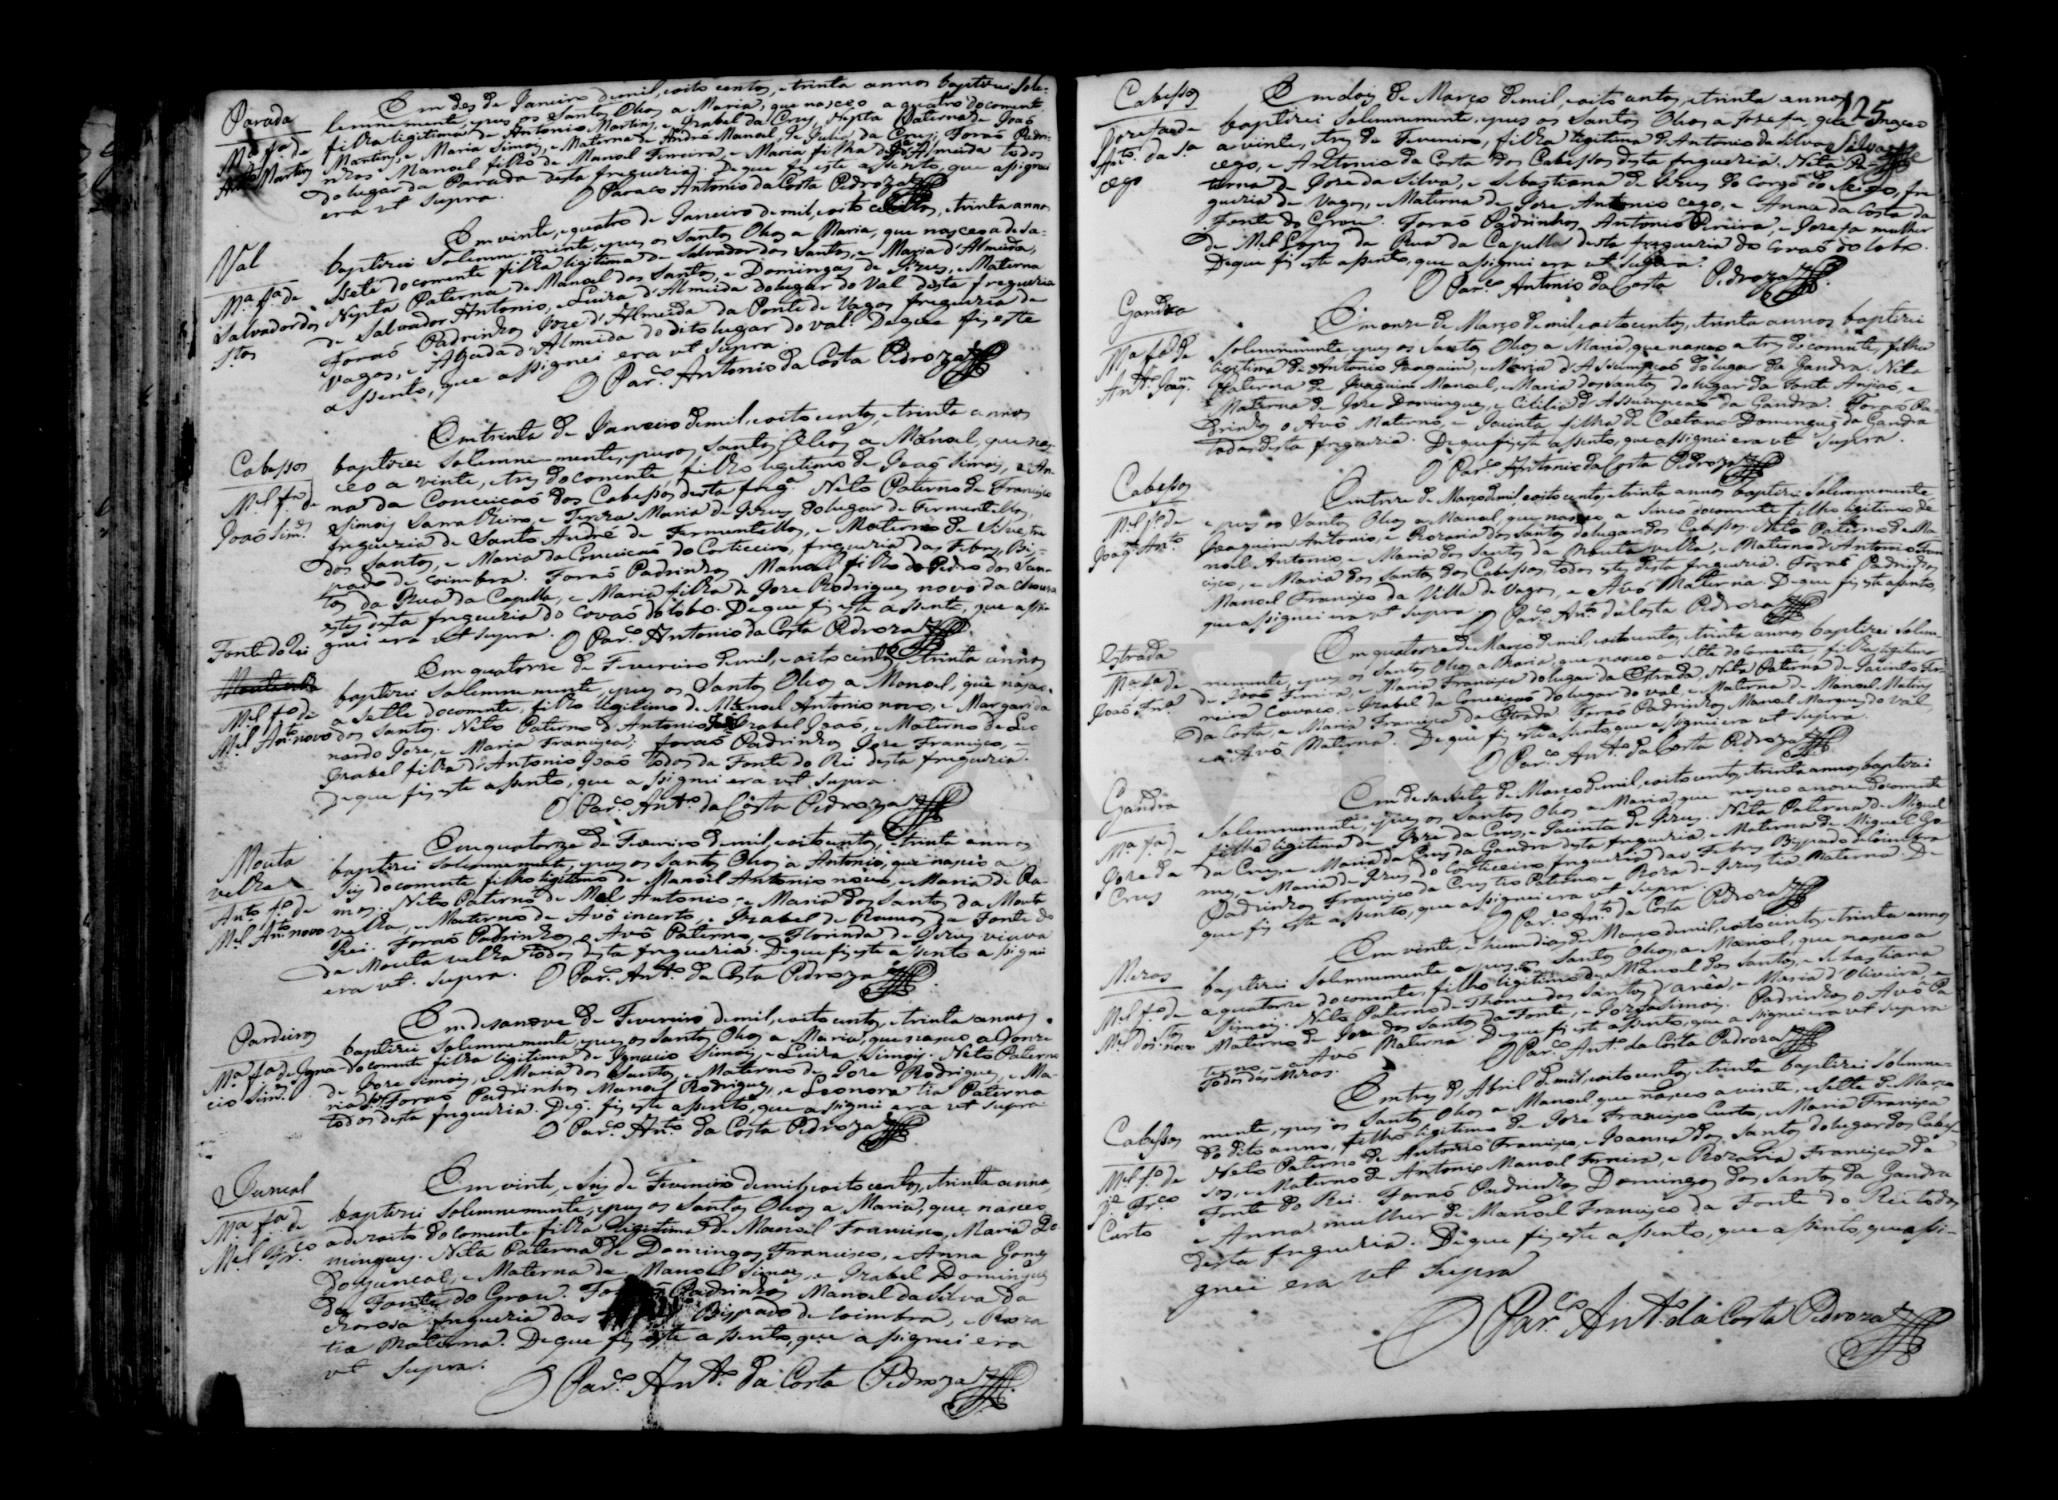 Parada
M.ª f.ª de
Ant.º Martins
Em des de Janeiro de mil, e oito centos, e trinta annos baptizei Sole-
lemnemente, e pus os Santos Oleos a Maria, que nasceo a quatro do corrente
filha legitima de Antonio Martins, e Izabel da Crus, Nepta Paterna de Joaõ
Martins, e Maria Simois, e Materna de André Manoel, e Julia da Crus; Foraõ Padri-
nhos Manoel filho de Manoel Ferreira, e Maria filha de Almeida todos
do lugar da Parada desta freguezia. De que fis este assento, que assignei
era vt supra. O Paraco Antonio da Costa Pedroza
Val
M.ª f.ª de
Salvador dos
S.tos
Em vinte, e quatro de Janeiro de mil, e oito centos, e trinta annos
baptizei Solemne-mente, e pus os Santos Oleos a Maria, que nasceo a desa-
ssete do corrente filha legitima de Salvador dos Santos, e Maria d'Almeida,
Nepta Paterna de Manoel dos Santos, e Domingas de Jezus, e Materna
de Salvador Antonio, e Luiza d'Almeida do lugar do Val desta freguezia
foraõ Padrinhos Joze d'Almeida da Ponte de Vagos freguezia de
Vagos, e Agada d'Almeida do dito lugar do Val. De que fis este
assento, que assignei era vt supra.
O Par.º Antonio da Costa Pedroza
Cabessos
M.el f.º de
Joaõ Sim.s
Em trinta de Janeiro de mil, e oito centos, e trinta annos
baptizei Solemne-mente, e pus os Santos Oleos a Manoel, que nas-
ceo a vinte, e tres do corrente, filho legitimo de Joaõ Simois, e An-
na da Conceicaõ dos Cabessos desta freg.ª Neto Paterno de Francisco
Simois Sarralheiro, e Tereza Maria de Jezus do lugar de Fermentellos,
freguezia de Santo André de Fermentellos, e Materno de Silvestre
dos Santos, e Maria da Conceicaõ do Corticeiro, freguezia das Febres, Bis-
pado de Coimbra. Foraõ Padrinhos Manoel filho de Pedro dos San-
tos da Rua da Capella, e Maria filha de Joze Rodrigues novo da Choura
estes desta freguezia do Covaõ do lobo. De que fis este assento, que assi-
gnei era vt supra. O Par.º Antonio da Costa Pedroza
Fonte do Rei
M.el f.º de
M.el Ant.º novo
Em quatorze de Fevereiro de mil, e oito centos, e trinta annos
baptizei Solemnemente, e pus os Santos Oleos a Manoel, que nasceo
a sette do corrente, filho legitimo de Manoel Antonio novo, e Margarida
dos Santos. Neto Paterno d'Antonio Izabel Joaõ, e Materno de Leo
nardo Joze, e Maria Francisca; foraõ Padrinhos Joze Francisco, e
Izabel filha d'Antonio Joaõ todos da Fonte do Rei desta freguezia.
De que fis este assento, que assignei era vt supra.
O Par.º Ant.º da Costa Pedroza
Mouta
velha
Ant.º f.º de
M.el Ant.º novo
Em quatorze de Fevereiro de mil, e oito centos, e trinta annos
baptizei Solemnemente, e pus os Santos Oleos a Antonio, que nasceo a
seis do corrente filho legitimo de Manoel Antonio novo, e Maria de Ra-
mos. Neto Paterno de M.el Antonio, e Maria dos Santos da Mouta
velha, e Materno de Avô incerto, e Izabel de Ramos da Fonte do
Rei. Foraõ Padrinhos o Avô Paterno, e Florinda de Jezus viuva
da Mouta velha todos desta freguezia. De que fis este assento assignei
era vt supra. O Par.º Ant.º da Costa Pedroza
Pardeiros
M.ª f.ª de Igna
cio Sim.s
Em desanove de Fevereiro de mil, e oito centos, e trinta annos
baptizei Solemnemente, e pus os Santos Oleos a Maria, que nasceo a doze
do corrente filha legitima de Ignacio Simois, e Luiza Simois. Neta Paterna
de Joze Simois, e Maria dos Santos, e Materna de Joze Rodrigues, e Ma-
ria Foraõ Padrinhos Manoel Rodrigues, e Leonora tia Paterna
todos desta freguezia. De q. fis este assento, que assignei era vt supra
O Par.º Ant.º da Costa Pedroza
Juncal
M.ª f.ª de
M.el Fr.co
Em vinte, e seis de Fevereiro de mil, e oito centos, e trinta annos,
baptizei Solemnemente, e pus os Santos Oleos a Maria, que nasceo
a dezoito do corrente filha legitima de Manoel Francisco, e Maria Do
mingues. Neta Paterna de Domingos Francisco, e Anna Gomes
do Juncal, e Materna de Manoel Simois, e Izabel Domingues
da Fonte do Grou. Foraõ Padrinhos Manoel da Silva da
Chorosa freguezia das Bispado de Coimbra, e Roza
tia Materna. De que fis este assento, que assignei era
vt supra.
O Par.º Ant.º da Costa Pedroza
125
Cabessos
Jozefa f.ª de
Ant.º da S.ª
cego
Em dois de Março de mil, e oito centos, e trinta annos
baptizei Solemnemente, e pus os Santos Oleos a Jozefa, que nasceo
a vinte, e tres de Fevereiro, filha legitima d'Antonio da Silva
cego, e Antonia da Costa dos Cabessos desta freguezia. Neta Pa-
terna de Joze da Silva, e Sebastiana de Jezus do Corgo do Seixo, fre
guezia de Vagos, e Materna de Joze Antonio cego, e Anna da Costa da
Fonte do Grou. Foraõ Padrinhos Antonio Pereira, e Jozefa mulher
de M.el Lopes da Rua da Capella desta freguezia do Covaõ do lobo.
De que fis este assento, que assignei era vt supra.
O Par.º Antonio da Costa Pedroza
Gandra
M.ª f.ª de
Ant.º Joaq.m
Em onze de Março de mil e oito centos, e trinta annos baptizei
Solemnemente, e pus os Santos Oleos a Maria, que nasceo a tres do corrente, filha
legitima de Antonio Joaquim, e Maria d'Assumpcaõ do lugar da Gandra. Neta
Paterna de Joaquim Manoel, e Maria dos Santos do lugar da Fonte Anjaõ, e
Materna de Joze Domingues, e Cicilia d'Assumpcaõ da Gandra. Foraõ Pa-
drinhos o Avô Materno, e Jacinta filha de Caetano Domingues da Gandra
todos desta freguezia. De que fis este assento, que assignei era vt supra.
O Par.º Antonio da Costa Pedroza
Cabessos
M.el f.º de
Joaq.m Ant.º
Em treze de Março de mil, e oito centos, e trinta annos baptizei Solemnemente
e pus os Santos Oleos a Manoel, que nasceo a sinco do corrente filho legitimo de
Joaquim Antonio, e Rozaria dos Santos do lugar dos Cabessos. Neto Paterno de Ma
noel Antonio, e Maria dos Santos da Mouta velha, e Materno d'Antonio Fran
cisco, e Maria dos Santos dos Cabessos, todos estes desta freguezia. Foraõ Padrinhos
Manoel Francisco da Villa de Vagos, e Avó Materna. De que fis este assento,
que assignei era vt supra. O Par.º Ant.º da Costa Pedroza
Estrada
M.ª f.ª de
Joaõ Fr.ª
Em quatorze de Março de mil, e oito centos, e trinta annos baptizei Solem-
nemente, e pus os Santos Oleos a Maria, que nasceo a sette do corrente, filha legitima
de Joaõ Ferreira, e Maria Francisca do lugar da Estrada, Neta Paterna de Jacinto Fer-
reira Cavaco, e Izabel da Conceiçaõ do lugar do Val, e Materna de Manoel Matias
da Costa, e Maria Francisca da Estrada. Foraõ Padrinhos Manoel Marques do Val,
e a Avó Materna. De que fis este assento, que assignei era vt supra.
O Par.º Ant.º da Costa Pedroza
Gandra
M.ª f.ª de
Joze da
Crus
Em desassete de Março de mil, e oito centos, e trinta annos baptizei
Solemnemente, e pus os Santos Oleos a Maria, que nasceo a nove do corrente
filha legitima de Joze da Crus, e Jacinta de Jezus. Neta Paterna de Miguel
da Crus, e Maria da Crus da Gandra desta freguezia, e Materna de Miguel Go
mes, e Maria de Jezus do Corticeiro freguezia das Febres Bispado de Coimbra
Padrinhos Francisco da Crus tio Paterno, e Roza de Jezus tia Materna. De
que fis este assento, que assignei era vt supra.
O Par.º Ant.º da Costa Pedroza
Mezas
M.el f.º de
M.el dos S.tos novo
Em vinte, e hum dias de Março de mil, e oito centos, e trinta annos
baptizei Solemnemente, e pus os Santos Oleos, a Manoel, que nasceo a
a quatorze do corrente, filho legitimo de Manoel dos Santos, e Sebastiana
Simois. Neto Paterno de Thome dos Santos d'area, e Maria d'Oliveira, e
Materno de Joze dos Santos da Fonte, e Jozefa Simois. Padrinhos o Avô Pa
terno, e Avó Materna. De que fis este assento, que assignei era vt supra
todos das Mezas. O Par.º Ant.º da Costa Pedroza
Cabessos
M.el f.º de
J.e Fr.co
Curto
Em tres de Abril de mil, e oito centos, e trinta baptizei Solemne-
mente, e pus os Santos Oleos a Manoel, que nasceo a vinte, e sette de Março
do dito anno, filho legitimo de Joze Francisco Curto, e Maria Francisca
Neto Paterno de Antonio Francisco, e Joanna dos Santos do lugar dos Cabes-
sos, e Materno de Antonio Manoel Ferreira, e Rozaria Francisca da
Fonte do Rei. Foraõ Padrinhos Domingos dos Santos da Gandra
e Anna mulher de Manoel Francisco da Fonte do Rei todos
desta freguezia. De que fis este assento, que assento, que assi-
gnei era vt supra
O Par.co Ant.º da Costa Pedroza